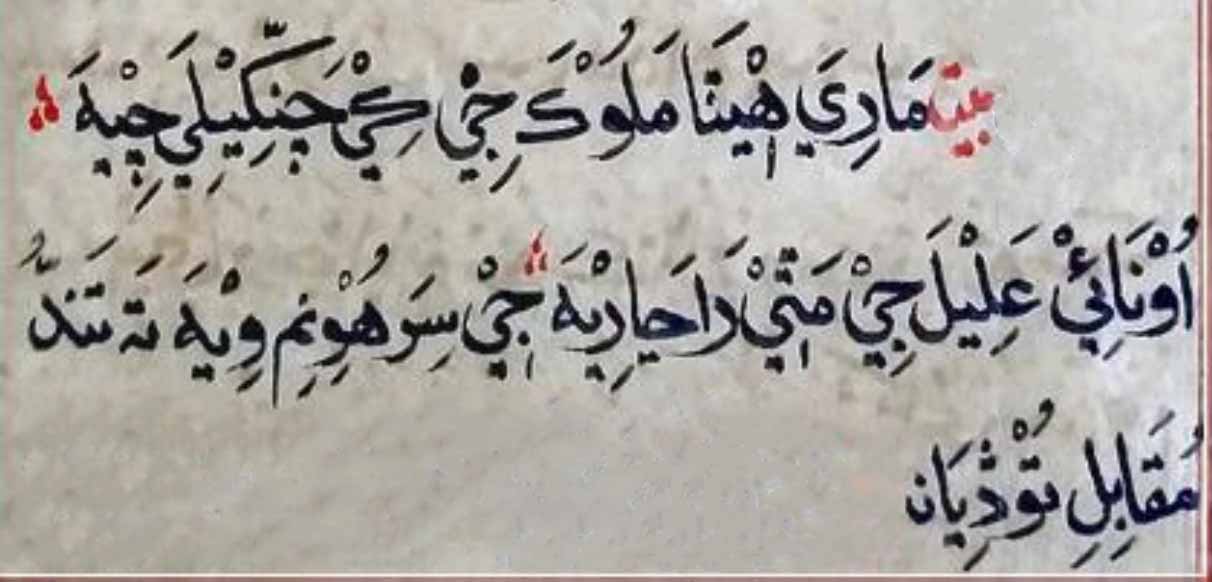 بيت مَارِي هِيْنَا مَلُوْڪَ جٖيْ کِيْ چَنِڪِيْلِيَ جِيْهَ ؞
اُوْنَائِيْ عَلِيْلَ جِيْ مَتٖيْ دَاحَارِيْهَ ؞ جٖيْ سِرَ هُوْنِمِ وِيْهَ تَہ تَنَدُ
مُقَابِلِ تُوْڎِيَان